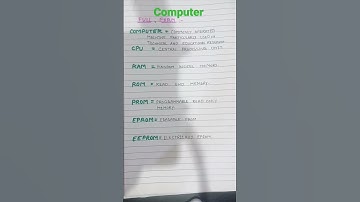 Computer
FULL FORM
COMPUTER = COMMONLY OPERATED
MACHINE PARTICULARLY USED IN
TECHNICAL AND EDUCATIONAL RESEARCH
CPU = CENTRAL PROCESSING UNIT
RAM = RANDOM ACCESS MEMORY
ROM = READ ONLY MEMORY
PROM = PROGRAMMABLE READ ONLY
MEMORY
EPROM = ERASABLE PROM
EEPROM = ELECTRICALLY EPROM